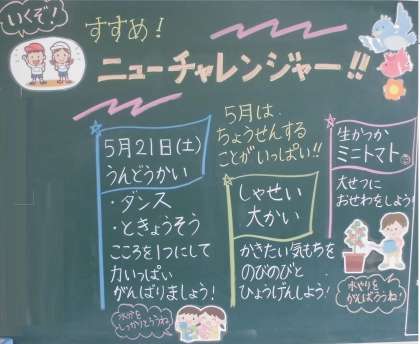 いくぞ!
すすめ!
ニューチャレンジャー!!
5月は
ちょうせんする
ことがいっぱい!!
5月21日(土)
うんどうかい
・ダンス
・ときょうそう
こころを1つにして
力いっぱい
がんばりましょう!
水分を
しっかりとろうね
しゃせい
大かい
かきたい気もちを
のびのびと
ひょうげんしよう!
生かつか
ミニトマト
大せつに
おせわをしよう!
水やりを
がんばろうね!